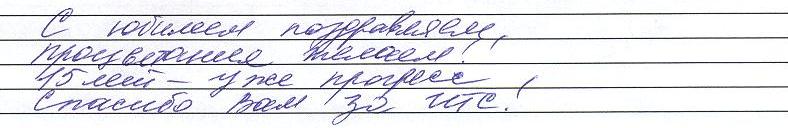 С юбилеем поздравляем,
процветания желаем!
15 лет – уже прогресс,
Спасибо Вам за